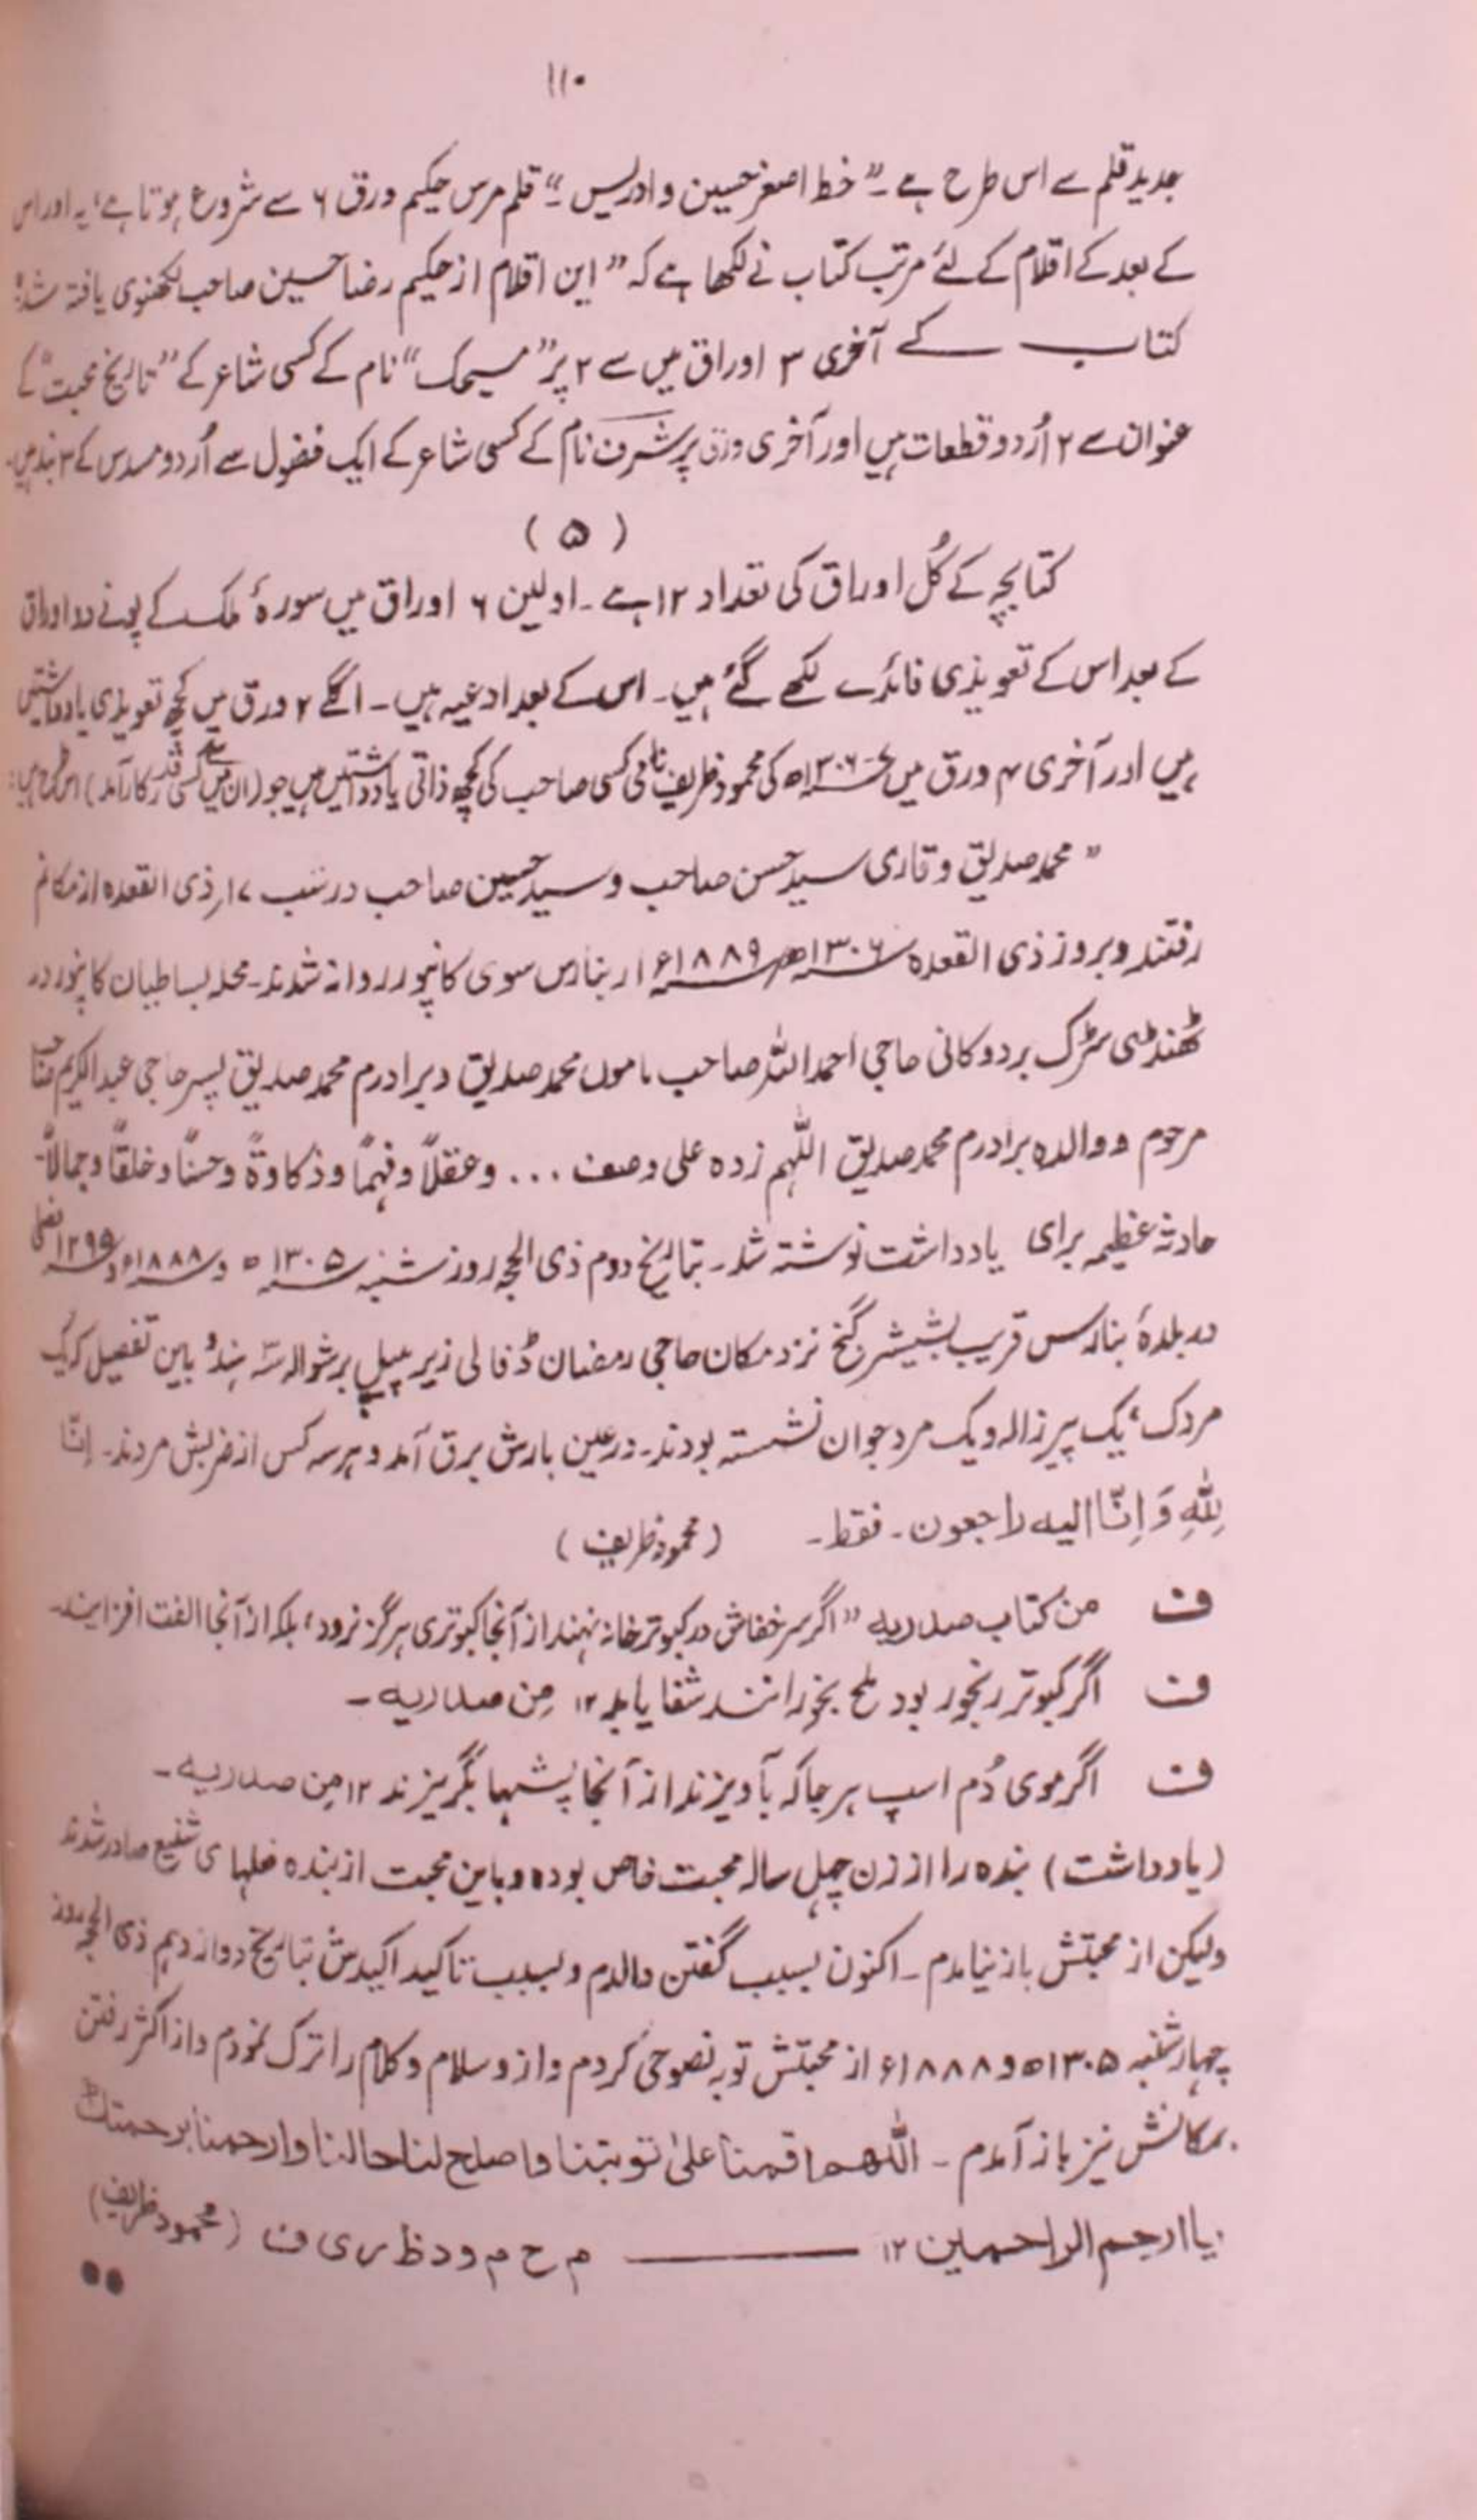 ۱۱۰
جدید قلم سے اس طرح ہے۔ "خط اصغر حسین و ادریس۔" قلم مرس حکیم ورق ۶ سے شروع ہوتا ہے، یہ اور اس
کے بعد کے اقلام کے لئے مرتب کتاب نے لکھا ہے کہ "این اقلام از حکیم رضا حسین صاحب لکھنوی یافتہ شد"
کتاب کے آخری ۳ اوراق میں سے ۲ پر "سیمک" نام کے کسی شاعر کے "تاریخ محبت" کے
عنوان سے ۲ اُردو قطعات ہیں اور آخری ورق پر شرف نام کے کسی شاعر کے ایک فضول سے اُردو مسدس کے ۳ بند ہیں۔
(۵)
کتابچہ کے کُل اوراق کی تعداد ۱۲ ہے۔ اولین ۶ اوراق میں سورۂ ملک کے پونے دو اوراق
کے بعد اس کے تعویذی فائدے لکھے گئے ہیں۔ اس کے بعد ادعیہ ہیں۔ اگلے ۲ ورق میں کچھ تعویذی یادداشتیں
ہیں اور آخری ۴ ورق میں ۱۳۰۶ھ کی محمود ظریف نامی کسی صاحب کی کچھ ذاتی یادداشتیں ہیں جو (ان میں سے کسی قدر کارآمد) اس طرح ہیں:
"محمد صدیق و قاری سید حسن صاحب و سید حسین صاحب در شب ۱۷ر ذی القعدہ از مکانم
رفتند و بروز ذی القعدہ ۱۳۰۶ھ ۱۸۸۹ء از بنارس سوی کانپور روانہ شدند۔ محلہ بساطیان کانپور در
ٹھنڈی سڑک بر دوکانی حاجی احمد اللہ صاحب ماموں محمد صدیق و برادرم محمد صدیق پسر حاجی عبدالکریم صاحب
مرحوم و والدہ برادرم محمد صدیق اللّٰہم زدہ علی وصف ... وعقلاً و فہماً و ذکاوۃً و حسناً و خلقاً و جمالاً۔
حادثہ عظیمہ برای یادداشت نوشتہ شد۔ بتاریخ دوم ذی الحجہ روز شنبہ ۱۳۰۵ھ و ۱۸۸۸ء و ۱۲۹۵ فصلی
در بلدۂ بنارس قریب بشیشر گنج نزد مکان حاجی رمضان ڈفالی زیر پیپل بر شوالہ ہند و باین تفصیل کہ یک
مردک، یک پیر زالہ و یک مرد جوان نشستہ بودند۔ در عین بارش برق آمد و ہر سہ کس از ضربش مردند۔ اِنّا
لِلّٰہِ وَ اِنّا الیہ راجعون۔ فقط۔ (محمود ظریف)
ف من کتاب صدریہ "اگر سر خفاش در کبوتر خانہ نہند از آنجا کبوتری ہرگز نرود، بلکہ از آنجا الفت افزایند۔
ف اگر کبوتر رنجور بود ملح بخورانند شفا یابد ۱۲ مِن صدریہ۔
ف اگر موی دُم اسپ ہر جا کہ بآویزند از آنجا پشہا بگریزند ۱۲ من صدریہ۔
(یادداشت) بندہ را از زن چہل سالہ محبت خاص بودہ و باین محبت از بندہ فعلہای شنیع صادر شدند
ولیکن از محبتش باز نیامدم۔ اکنون بسبب گفتن والدم و بسبب تاکید اکیدش بتاریخ دوازدہم ذی الحجہ روز
چہارشنبہ ۱۳۰۵ھ و ۱۸۸۸ء از محبتش توبہ نصوحی کردم و ازو سلام و کلام را ترک نمودم و از اکثر رفتن
بمکانش نیز باز آمدم۔ اللّٰھم اقمنا علیٰ توبتنا واصلح لنا حالنا وارحمنا برحمتک
یا ارحم الراحمین ۱۲ ——— م ح م و د ظ ر ی ف (محمود ظریف)